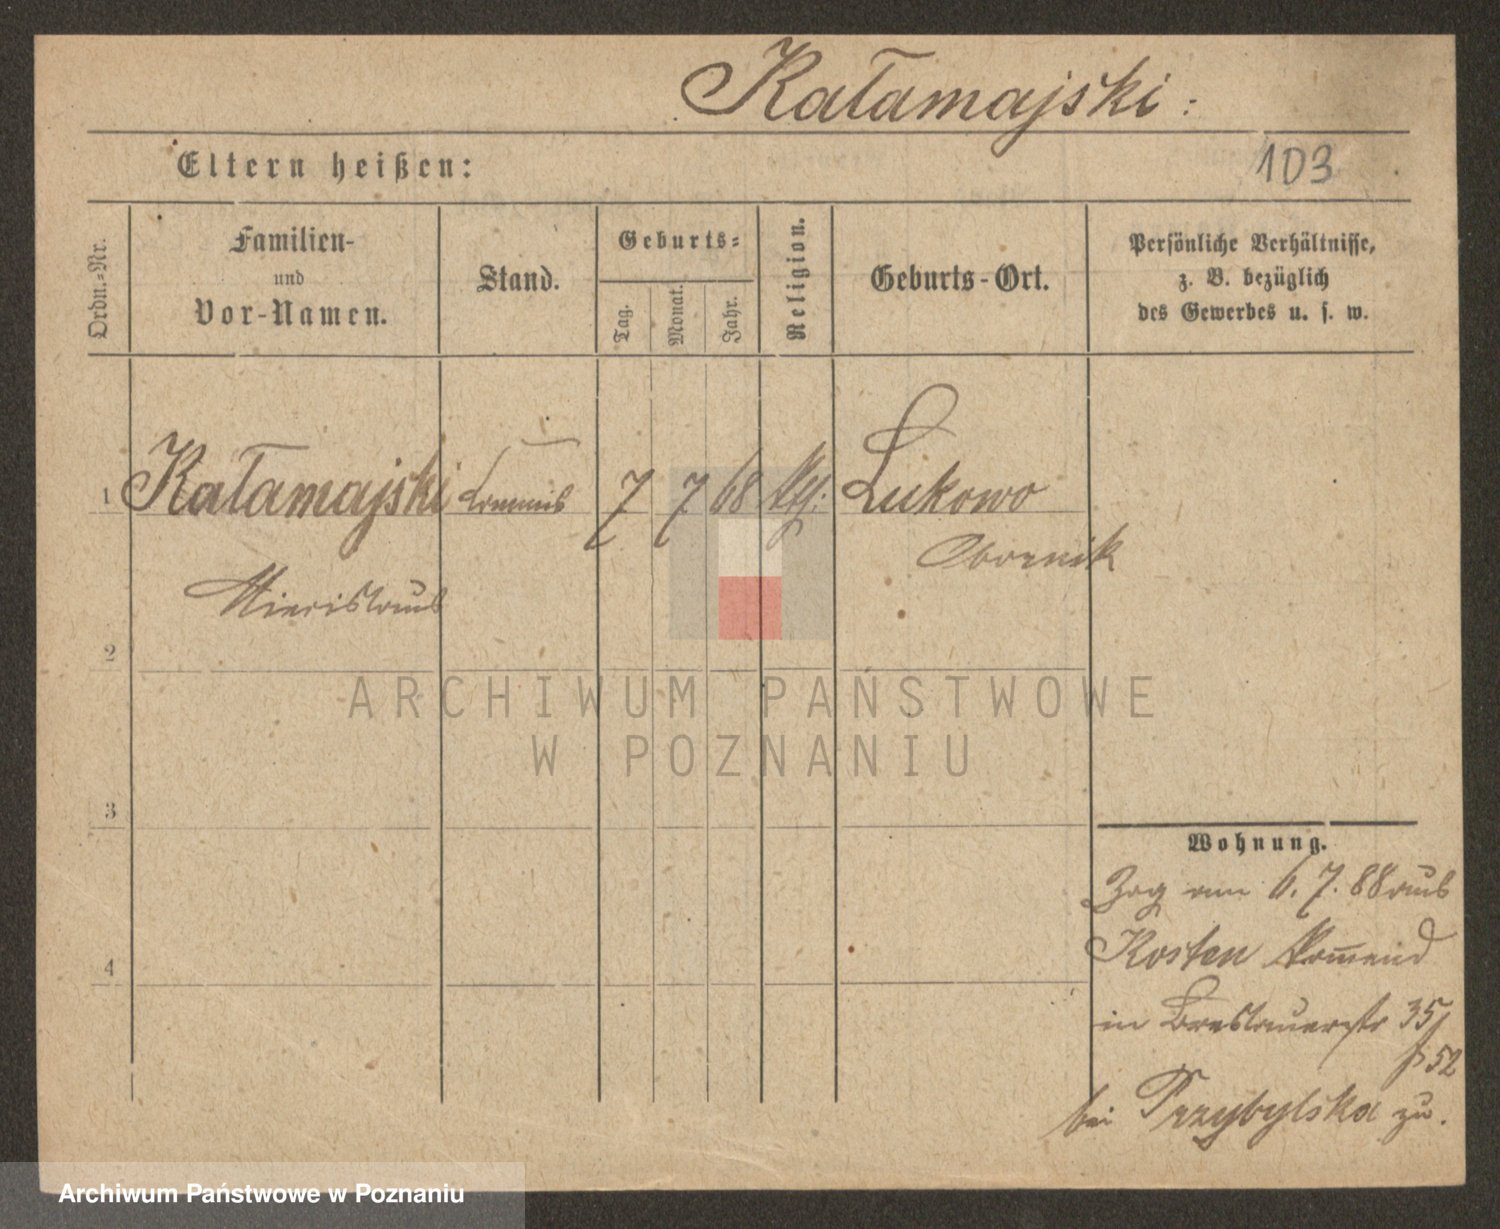 Kałamajski:
103
Eltern heißen:
Ordn.-Nr.
Familien-
und
Vor-Namen.
Stand.
Geburts-
Tag.
Monat.
Jahr.
Religion.
Geburts-Ort.
Persönliche Verhältnisse,
z. B. bezüglich
des Gewerbes u. s. w.
1 Kałamajski Commis 7 7 68 Kth: Lukowo
Obornik
Miecislaus
2
3
4
Wohnung.
Zog am 6. 7. 88 aus
Kosten kom̅end
in Breslauerstr 35/
52
bei Przybylska zu.
ARCHIWUM PAŃSTWOWE
W POZNANIU
Archiwum Państwowe w Poznaniu